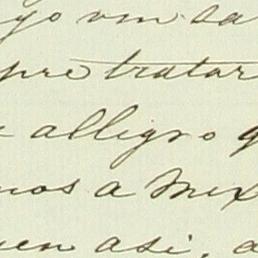 yo un sa
pre tratar
allegro q
nos a Mex
uen asi, a